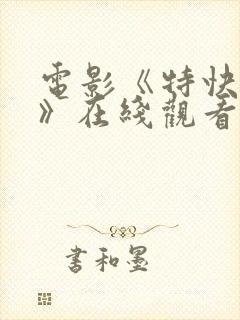 電影《特快
》在綫觀看
書和墨